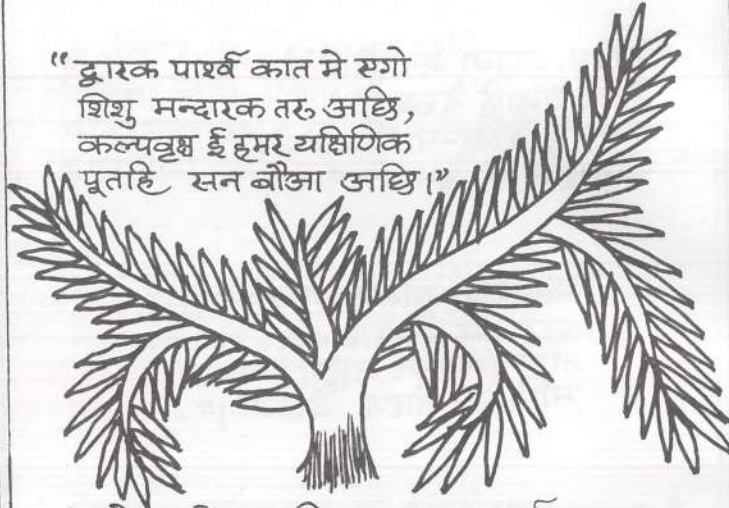 “द्वारक पार्श्व कात मे एगो
शिशु मन्दारक तरु अछि,
कल्पवृक्ष ई हमर यक्षिणिक
पूतहि सन बौआ अछि।”